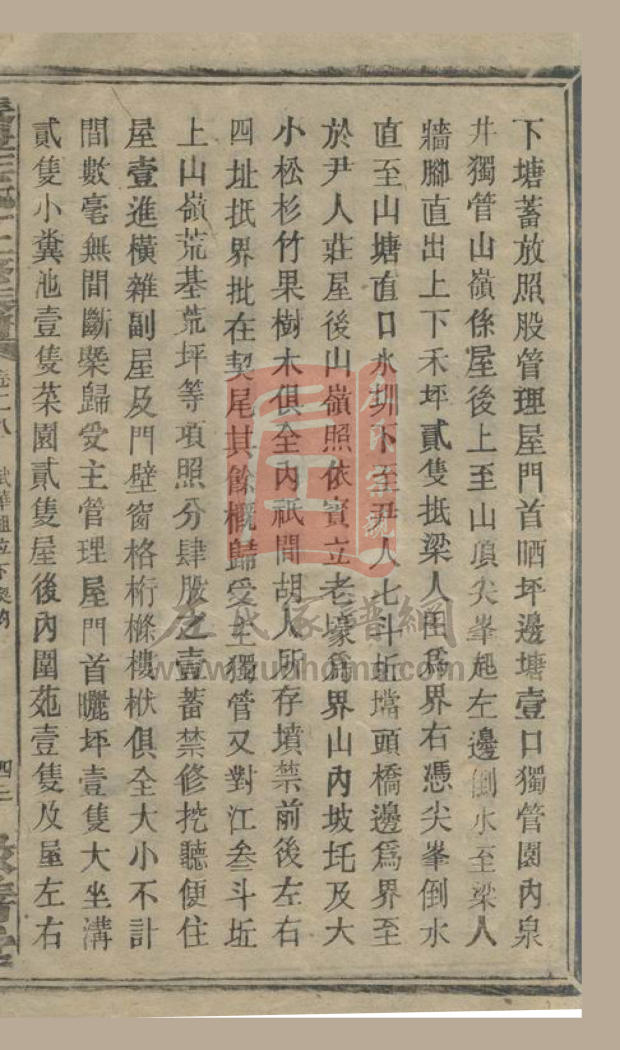 下塘蓄放照股管理屋門首晒坪邊塘壹口獨管園內泉
井獨管山嶺係屋後上至山頂尖峯起左邊倒水至梁人
牆腳直出上下禾坪貳隻抵梁人田爲界右憑尖峯倒水
直至山塘直口水圳下至尹人七斗坵壋頭橋邊爲界至
於尹人莊屋後山嶺照依賓立老壕爲界山內坡圫及大
小松杉竹果樹木俱全內祇間胡人所存墳禁前後左右
四址抵界批在契尾其餘概歸受主獨管又對江叁斗坵
上山嶺荒基荒坪等項照分肆股之壹蓄禁修挖聽便住
屋壹進橫雜副屋及門壁窗格桁條樓栿俱全大小不計
間數毫無間斷槩歸受主管理屋門首曬坪壹隻大坐溝
貳隻小糞池壹隻菜園貳隻屋後內園苑壹隻及屋左右
左氏家譜網
www.zuohome.com